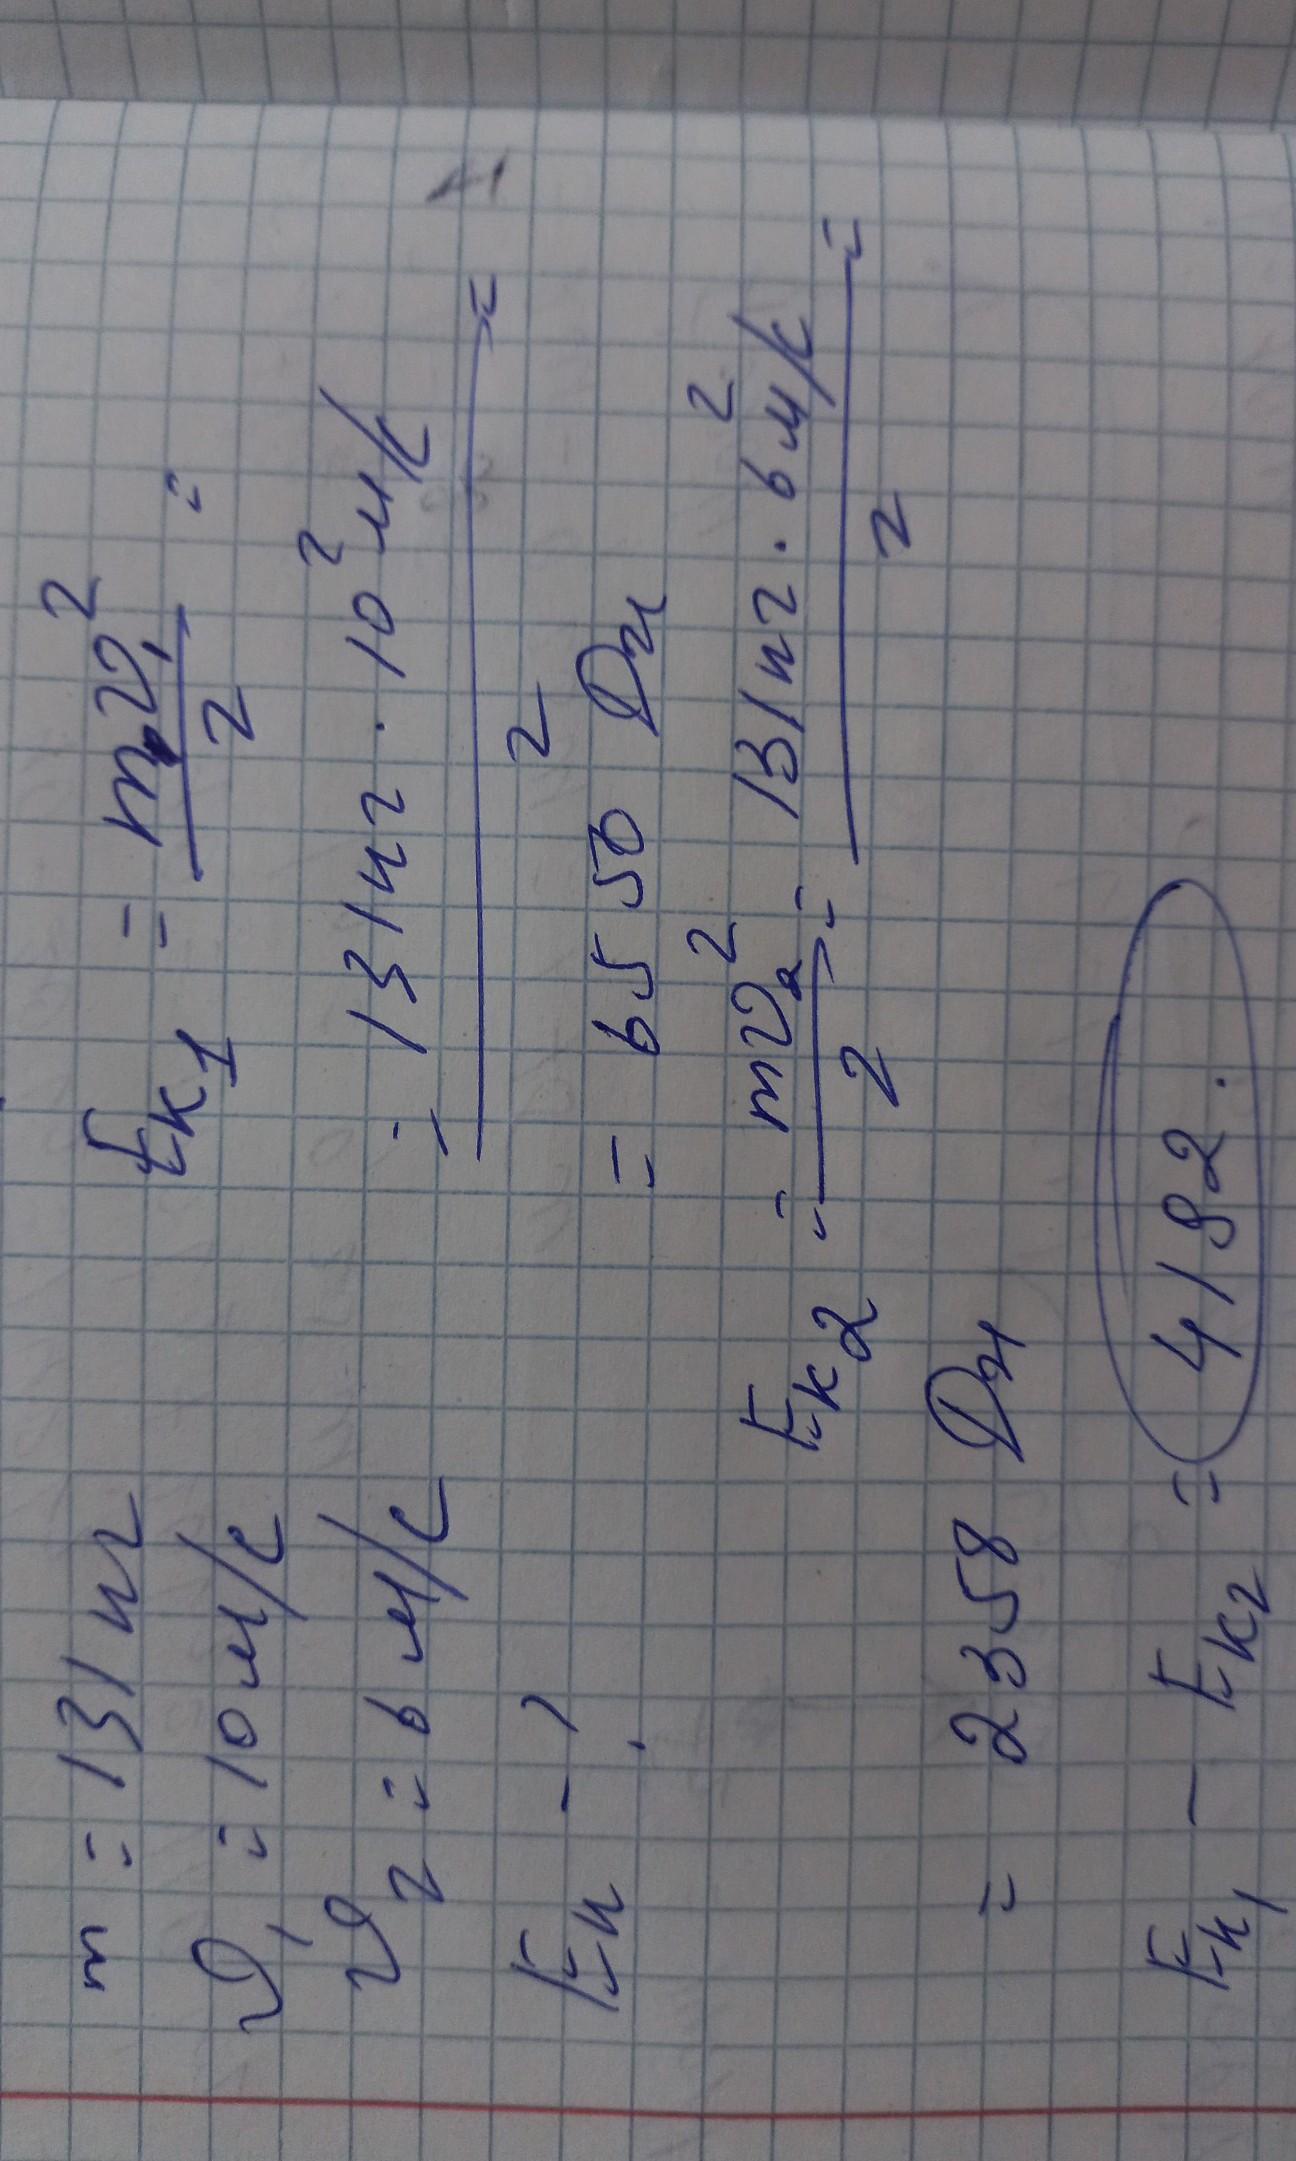 m = 131 кг
υ₁ = 10 м/с
υ₂ = 6 м/с
Eк - ?
Eк₁ = mυ₁²/2 =
= 131 кг · 10² м/с / 2 =
= 6550 Дж
Eк₂ = mυ₂²/2 = 131 кг · 6² м/с / 2 =
= 2358 Дж
Eк₁ - Eк₂ = 4192.